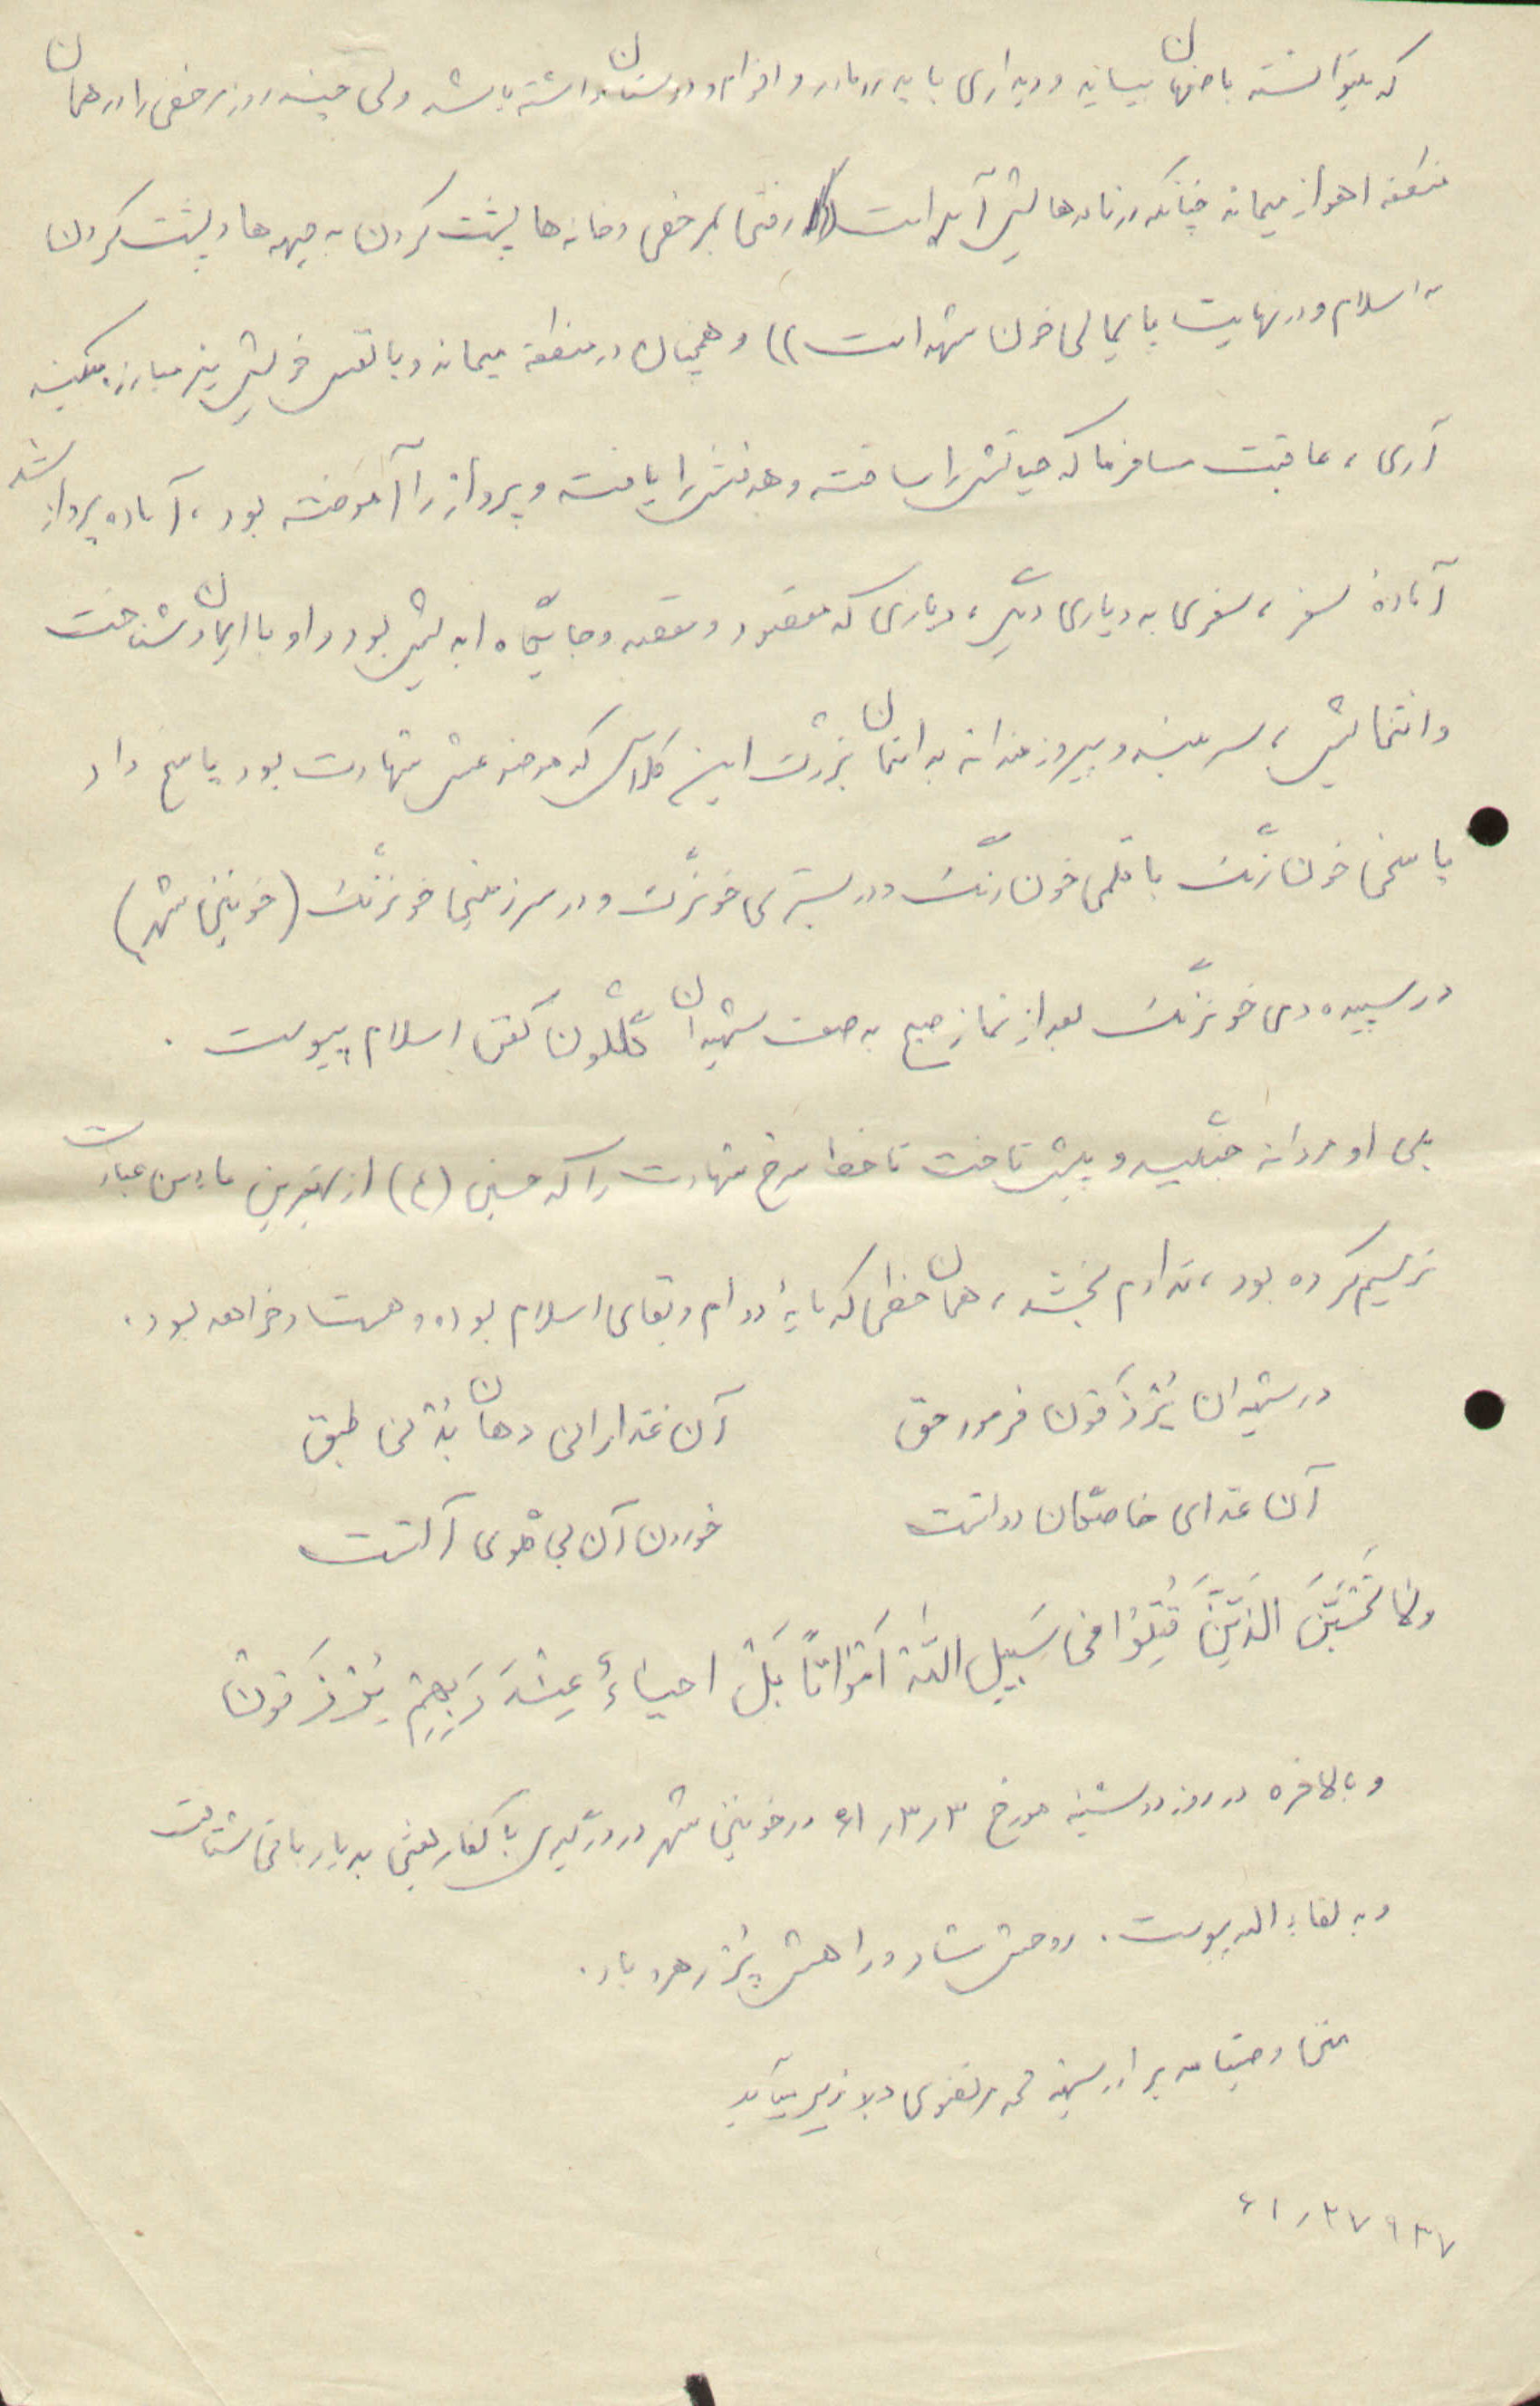 که میتوانسته باصفهان بیاید و دیداری با پدر و مادر و اقوام و دوستان داشته باشد ولی چند روز مرخصی را در همان
منطقه اهواز میماند چنانکه در نامه‌هایش آمده است (( رفتن بمرخصی و خانه‌ها پشت کردن به جبهه‌ها و پشت کردن
به اسلام و در نهایت پایمالی خون شهداست )) و همچنان در منطقه میماند و با نفس خویش نیز مبارزه میکند
آری، عاقبت مسافر ما که حیاتش را ساخته و هدفش را یافته و پرواز را آموخته بود، آماده پرواز شد
آمادهٔ سفر، سفری به دیاری دیگر، دیاری که مقصود و مقصد و جایگاه ابدیش بود و او با ایمان و شناخت
و انتخابش، سربلند و پیروزمندانه به امتحان بزرگ این کلاس که موضوعش شهادت بود پاسخ داد
پاسخی خون رنگ با قلمی خون رنگ و در بستری خونرنگ و در سرزمینی خونرنگ (خونین شهر)
در سپیده دمی خونرنگ بعد از نماز صبح به صف شهیدان گلگون کفن اسلام پیوست.
بلی او مردانه جنگید و پیش تاخت تا خط سرخ شهادت را که حسین (ع) از بهترین عبادت
ترسیم کرده بود، تداوم بخشد، همان خطی که مایهٔ دوام و بقای اسلام بوده و هست و خواهد بود.
در شهیدان یُرْزَقون فرمود حق آن غذا را نی دهان بُد نی طبق
آن غذای خاصگان دولتست خوردن آن بی گلوی آلتست
ولا تَحْسَبَنَّ الَّذینَ قُتِلُوا فی سَبیلِ اللّهِ اَمْواتاً بَلْ احیاءٌ عِنْدَ رَبِهِمْ یُرْزَقونْ
و بالاخره در روز دوشنبه مورخ ۶۱٫۳٫۳ در خونین شهر در درگیری با کفار بعثی به دیار باقی شتافت
و به لقاء الله پیوست. روحش شاد و راهش پُر رهرو باد.
متن وصیتنامه برادر شهید محمد مرتضوی در زیر میآید
۶۱٫۳۷۹۳۷